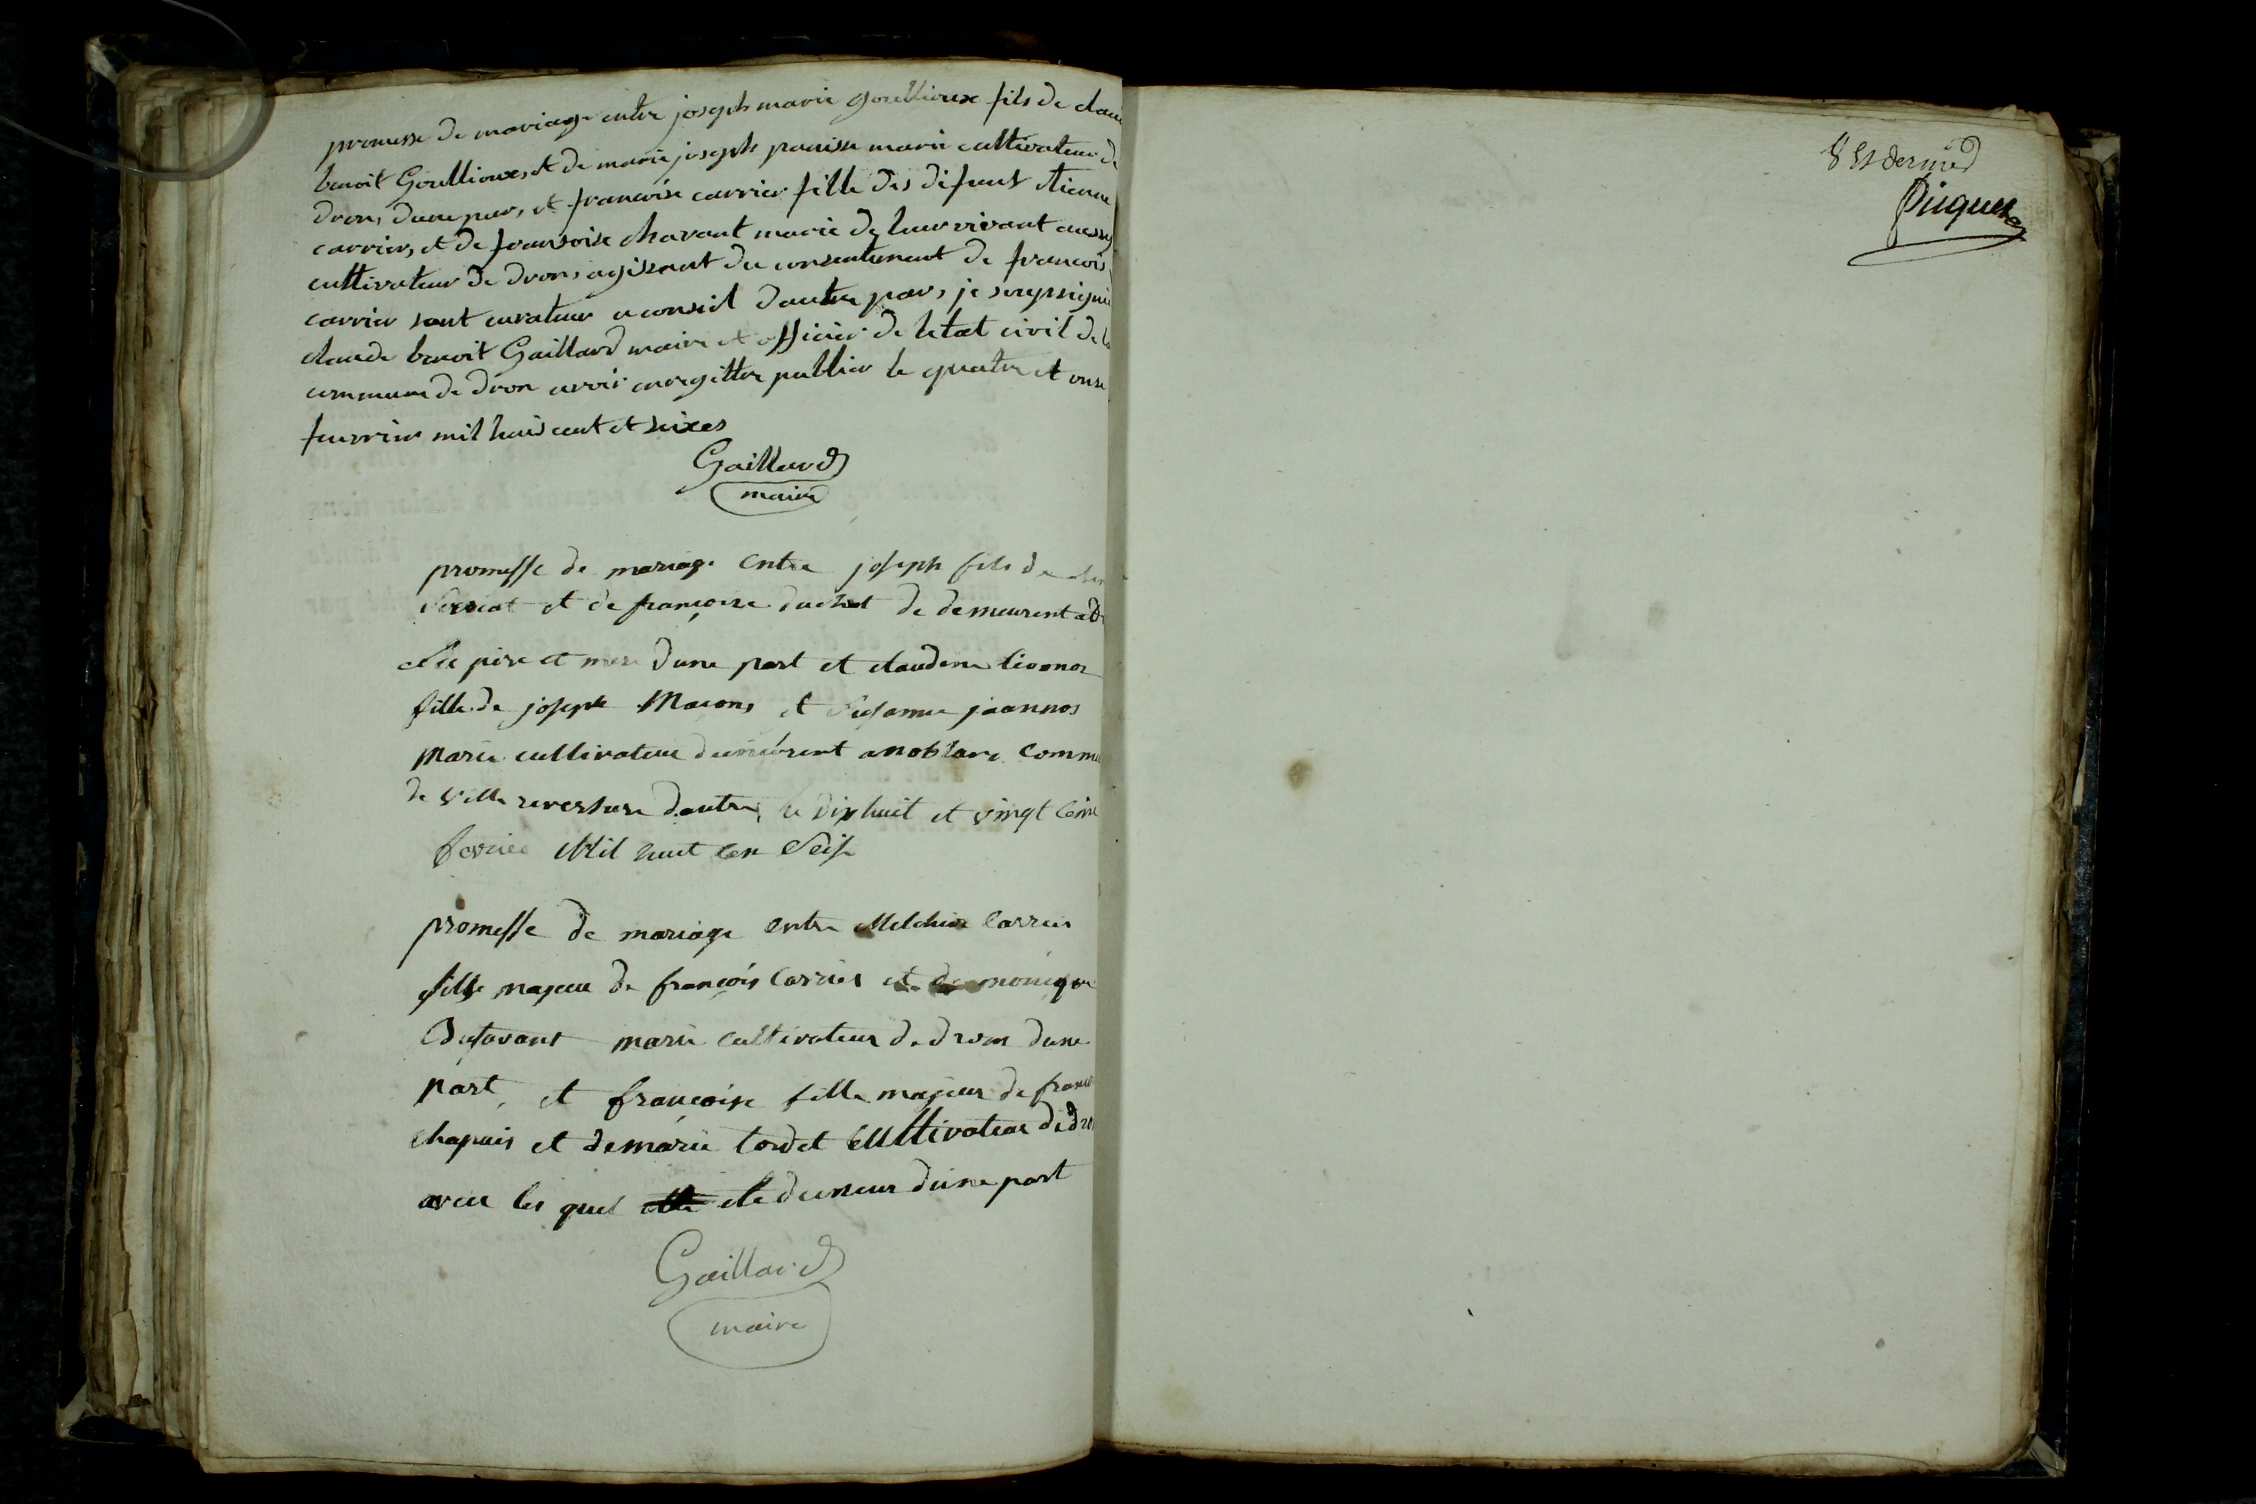 promesse de mariage entre joseph marie goullioux fils de clau
benoit Goullioux et de marie joseph panisse marie cultivateur de
drom dune pars, et francoise carrier fille des défunt etienne
carrier, et de francoise chavant marie de leur vivant aussy
cultivateur de drom, agissent du consentement de francois
carrier sont curateur a conseil dautre pars, je soussignie
claude benoit Gaillard maire et officier de letat civil de la
commune de drom avoir enregitter publier le quatre et onse
fuvrier mil huis cent et seixes
Gaillard
maire
promesse de mariage entre joseph fils de
et de françoise duchet de demeurent a d
père et mere dune part et claudine
fille de joseph Macons et jeannos
marie cultivateur demeurent anoblans commu
de Ville reversure dautre, le dix huit et vingt cinc
fevrier Mil huit cen Seise
promesse de mariage entre Melchior Carrier
fils majeur de françois Carrier et de monique
Chatavant marie cultivateur de drom dune
part, et françoise fille majeur de franc
chapuis et de marie tordet Cultivateur de dro
avec les quel elle demeur dune part
Gaillard
maire
8 et dernier
Piquet